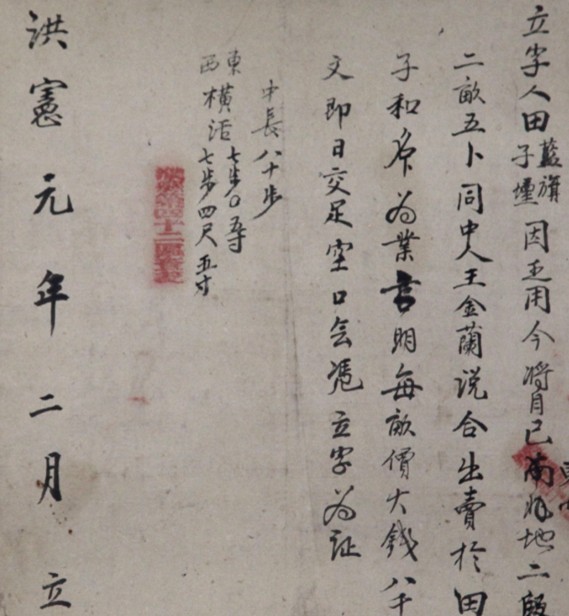 立字人田藍旗子壜因正用今將自己南北地二段
二畝五卜同中人王金蘭说合出賣於田
子和名下为業言明每畝價大錢八千
文即日交足空口無憑立字为証
中長八十步
東横活七步0五寸
西七步四尺五寸
洪憲元年二月立